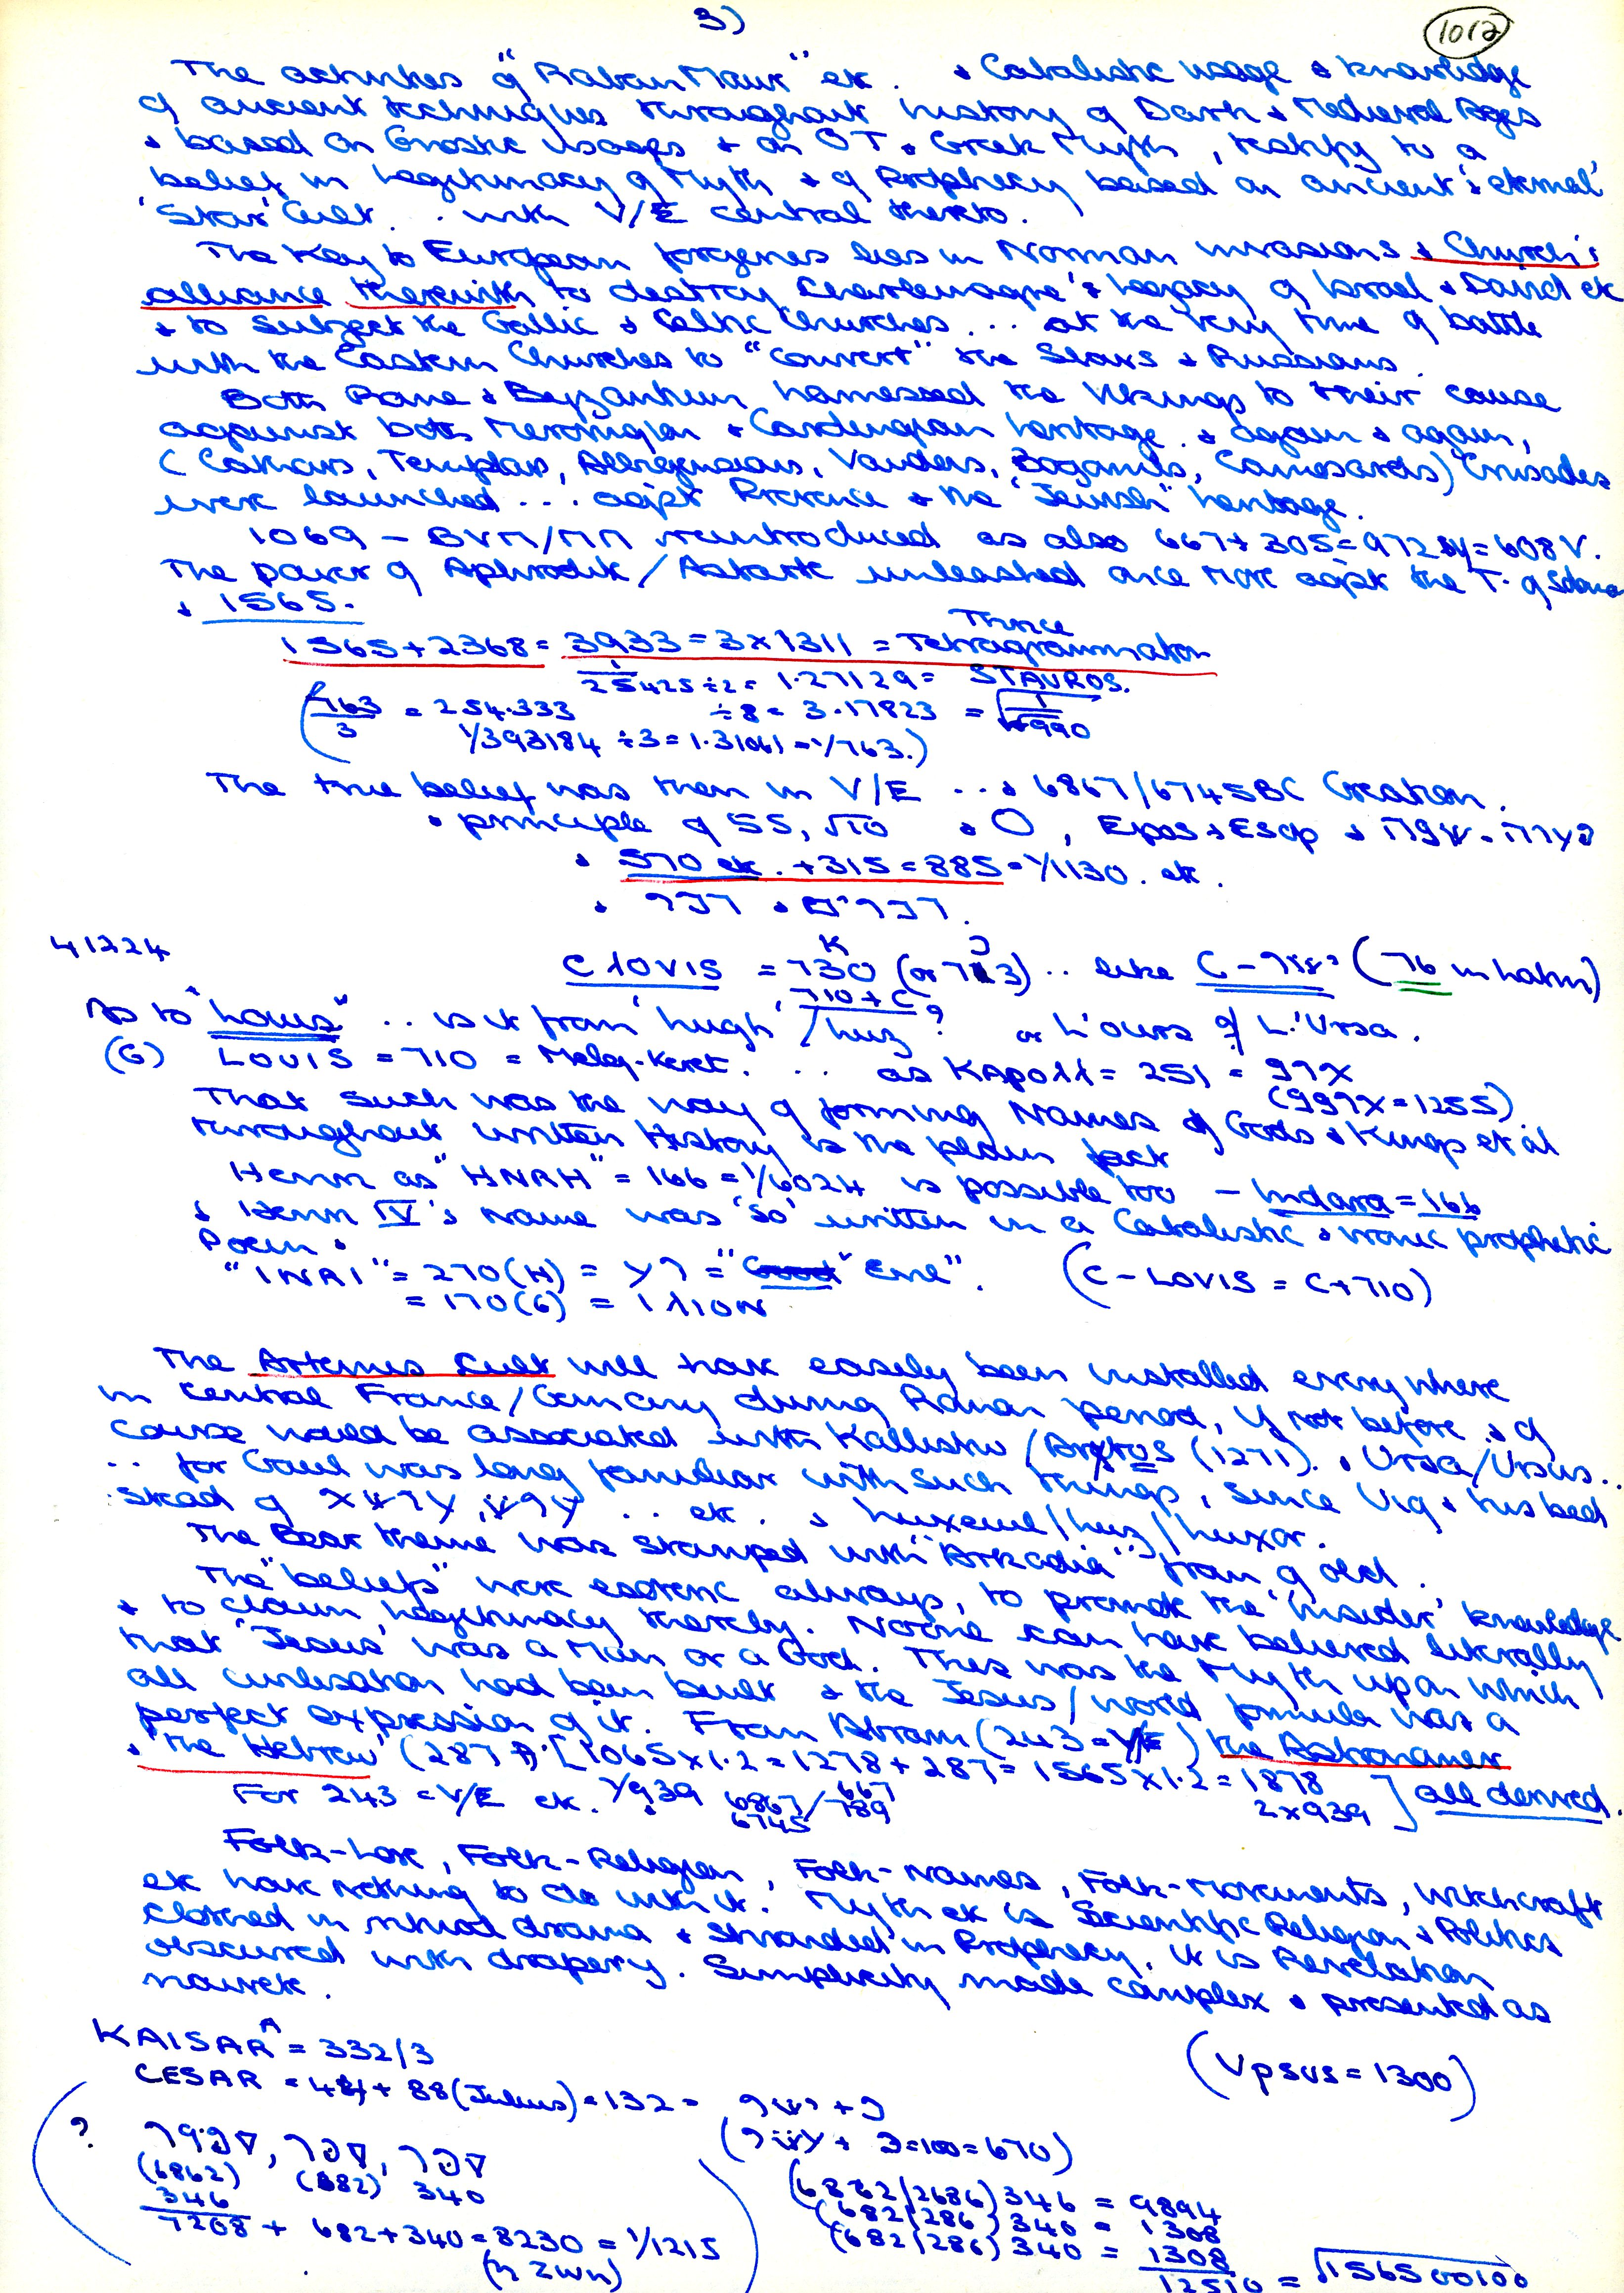 3)
1012
The activities of "Raban Maur" etc. & Cabalistic usage & knowledge
of ancient techniques throughout history of Dark & Medieval Ages
& based on Gnostic usages & on OT & Greek Myth, testify to a
belief in legitimacy of Myth & of Prophecy based on ancient & 'eternal'
'Star' Cult .. with V/E central thereto.
The Key to European forgeries lies in Norman invasions & Church's
alliance therewith to destroy Charlemagne's legacy of Israel & David etc
& to subject the Gallic & Celtic Churches ... at the very time of battle
with the Eastern Churches to "convert" the Slavs & Russians.
Both Rome & Byzantium harnessed the Vikings to their cause
against both Merovingian & Carolingian heritage. & again & again,
(Cathars, Templars, Albigensians, Vaudois, Bogomils, Camisards) Crusades
were launched ... agst Provence & the "Jewish" heritage.
1069 - BVM/MM reintroduced as also 667+305=972 = 608 V.
The power of Aphrodite/Astarte unleashed once more agst the T. of
& 1565.
1565+2368 = 3933 = 3x1311 = Thrice Tetragrammaton
1/25425 ÷2 = 1.27129 = STAVROS.
(763/3 = 254.333 ÷8 = 3.17823
1/393184 ÷3 = 1.31061 = 1/763.)
The true belief was then in V/E ... & 6867/6745BC Creation.
& principle of SS, √10 & O, Epos & Esop &
& 570 etc. +315 = 885 = 1/1130. etc.
41224
CLOVIS = 730 (or 713) .. like C- (76 in halm)
As to "Louis" .. is it from 'Lugh' / Luz? or L'ours of L.'Ursa.
710+C
(G) LOUIS = 710 = Meleq-Keret. ... as KAPOLL = 251 = 99X
(999X=1255)
That such was the way of forming Names of Gods & Kings et al
throughout written History is the plain fact
Henri as "HNRH" = 166 = 1/6024 is possible too - Indara = 166
& Henri IV's name was 'so' written in a Cabalistic & ironic prophetic
Poem.
"INRI" = 270(H) = = "Evil". (C-LOVIS = C+710)
= 170(G) = ILION
The Artemis Cult will have easily been installed everywhere
in Central France/Germany during Roman period, if not before & of
course would be associated with Kallisto/Arktos (1271). & Ursa/Ursus..
.. for Gaul was long familiar with such things, since Ug & his bed
stead of .. etc. & Luxeuil/Luz/Luxor.
The Bear theme was stamped with "Arkadia" from of old.
The "beliefs" were esoteric always, to promote the 'insider' knowledge
& to claim legitimacy thereby. Noone can have believed literally
that 'Jesus' was a Man or a God. This was the Myth upon which
all civilisation had been built & the Jesus/world formula was a
perfect expression of it. From Abram (243=V/E) the Astronomer
& 'the Hebrew' (287 [1065x1.2=1278+287=1565x1.2=1878
For 243 = V/E etc. 1/939 6867/667 6745/789 2x939] all derived.
Folk-Lore, Folk-Religion, Folk-Names, Folk-Movements, Witchcraft
etc have nothing to do with it. Myth etc is Scientific Religion & Politics
clothed in ritual drama & shrouded in Prophecy, it is Revelation
obscured with drapery. Simplicity made complex & presented as
naivete.
KAISAR = 332/3
(Vpsus = 1300)
CESAR = 44 + 88 (Julius) = 132 =
( + = 100 = 670)
?
(6862) (682) 340
346
7208 + 682+340 = 8230 = 1/1215
(6862/2686) 346 = 9894
(682/286) 340 = 1308
(682/286) 340 = 1308
12510 = √156500100